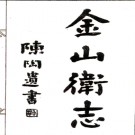 金山衛志
陳陶遺書